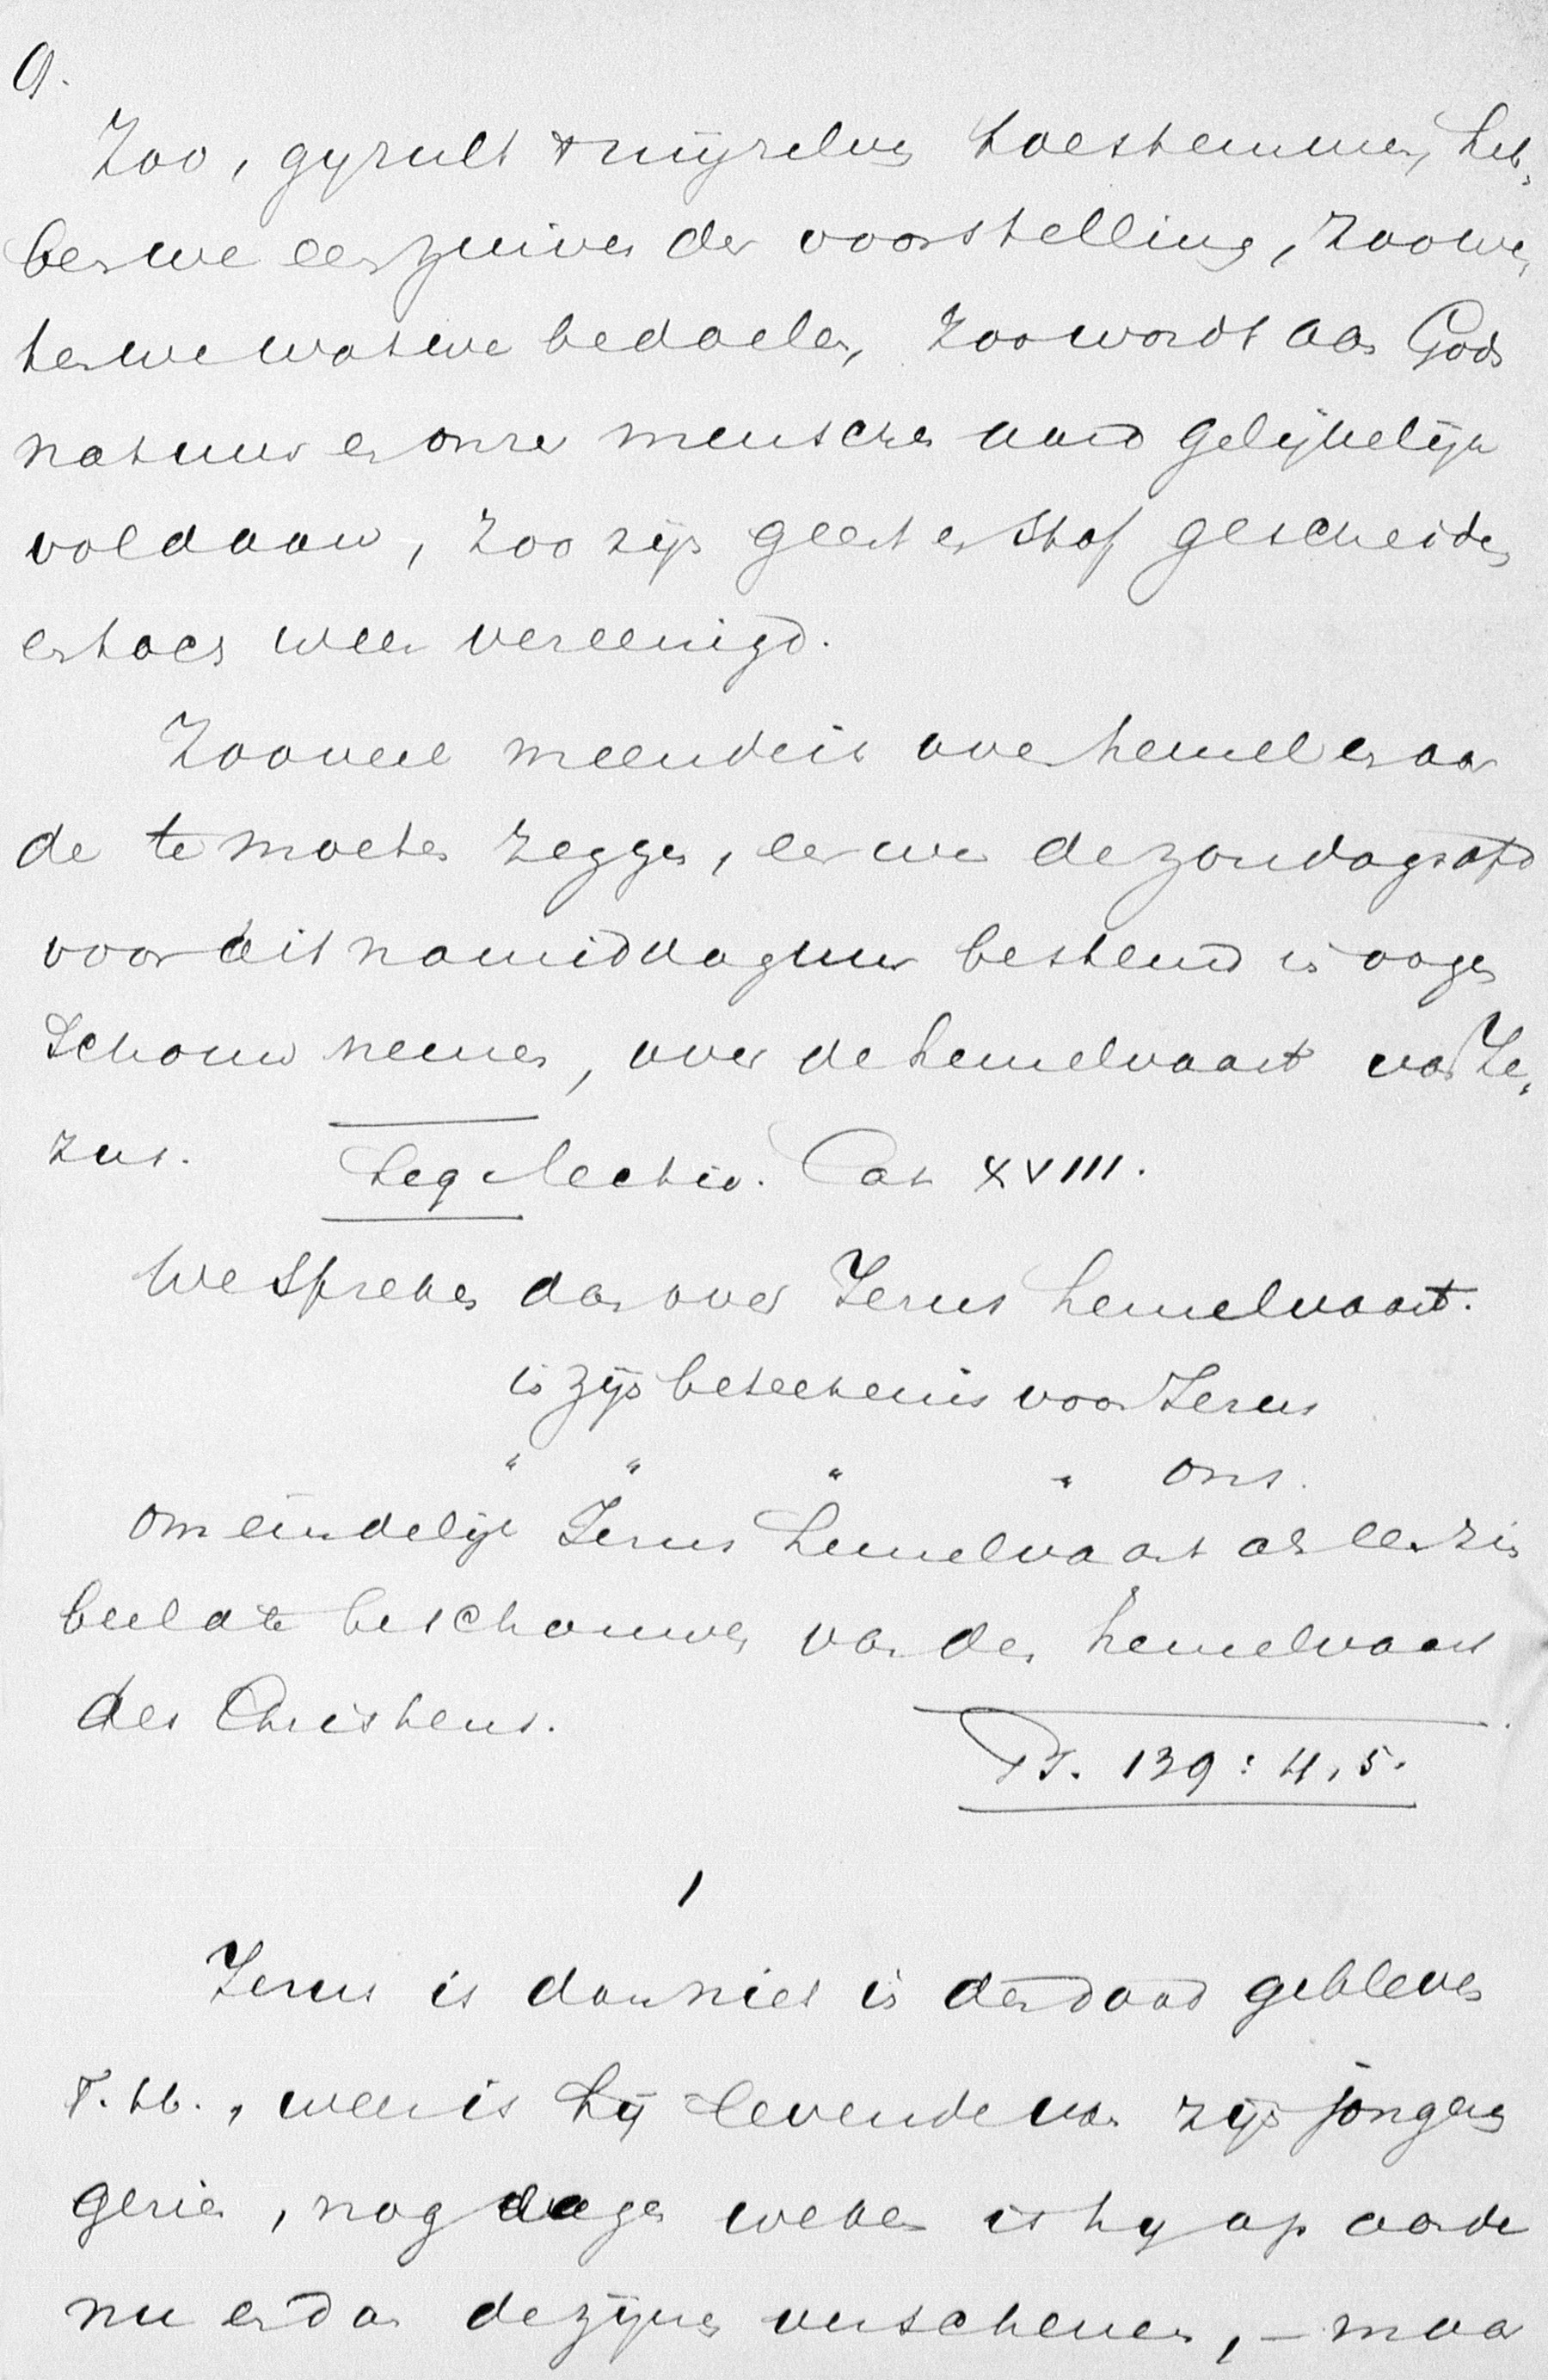 9.
Zoo, gij zult 't mij zelven toestemmen, heb-
ben we een zuiver der voorstelling, zoo we-
ten we wat we bedoelen, zoo wordt aan Gods
natuur en onzen menschen aard gelijkelijk
voldaan, zoo zijn geest en stof gescheiden
en toch weer vereenigd.
Zooveel meende ik over hemel en aar
de te moeten zeggen, eer we de zondagsafd
voor dit namiddaguur bestemd in oogen
schouw nemen, over de hemelvaart van Je-
zus. Leg. lectio. Cat XVIII.
We spreken dan over Jezus hemelvaart.
in zijn beteekenis voor Jezus
" " " " ons.
om eindelijk Jezus hemelvaart als een zin
beeld te beschouwen van den hemelvaart
des Christens.
Ps. 139 : 4, 5.
1
Jezus is dan niet in den dood gebleven
T. hb., weer is hij levende van zijn jongeren
gezien, nog dagen weken is hij op aarde
nu en dan de zijnen verschenen, – maar